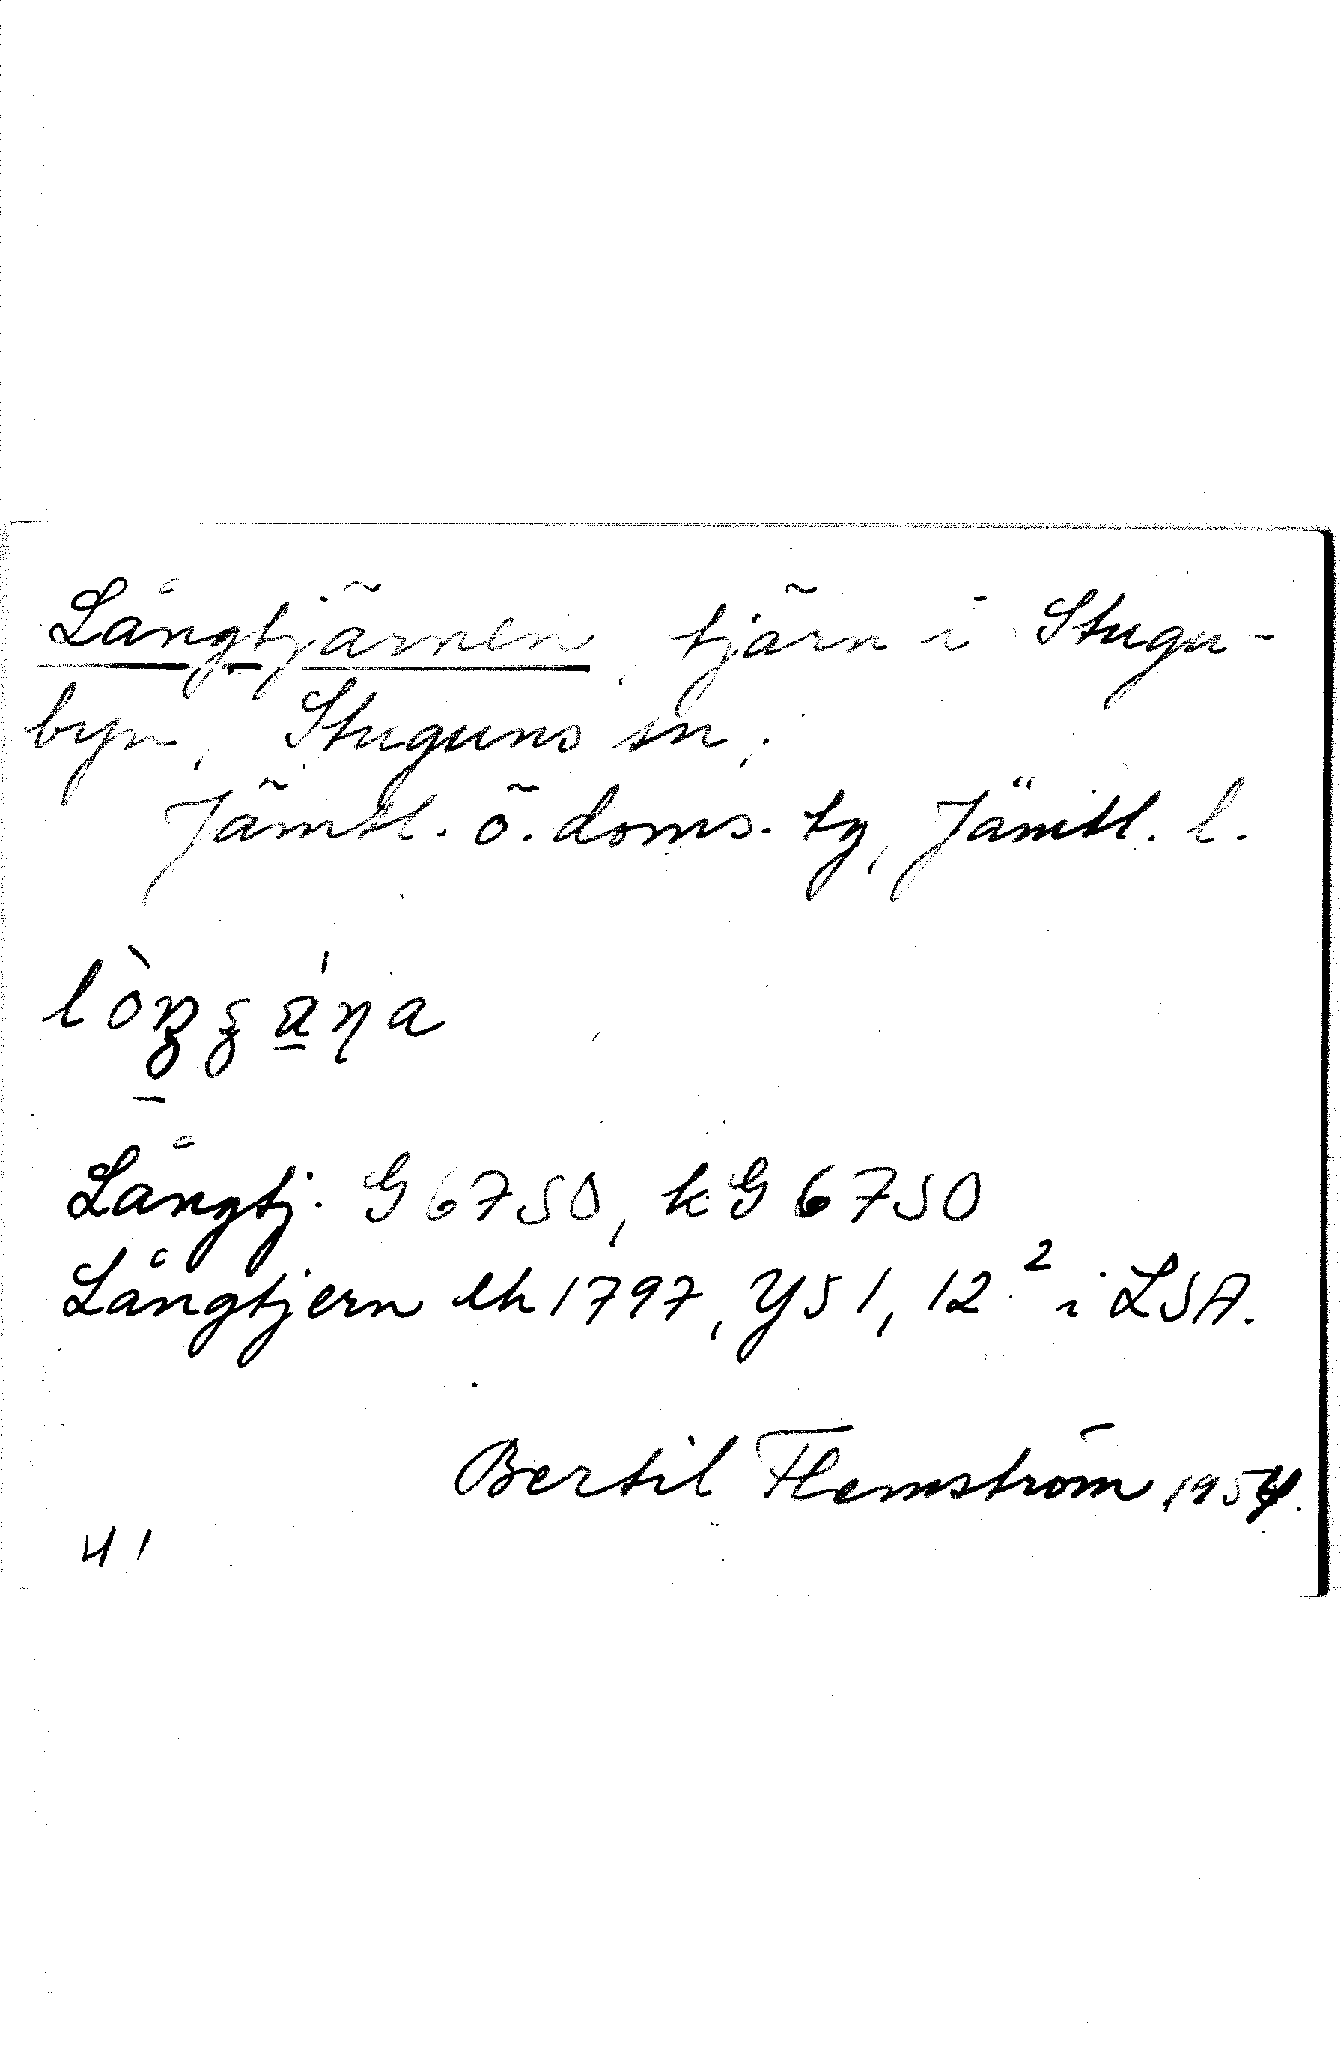 Långtjärnen, tjärn i Stugu-
byn, Stuguns sn,
Jämtl. ö. doms. tg, Jämtl. l.
Långtj. G 6750, kG 6750
Långtjern lh 1797, Y51, 12² i LSA.
Bertil Flemström 1954.
41